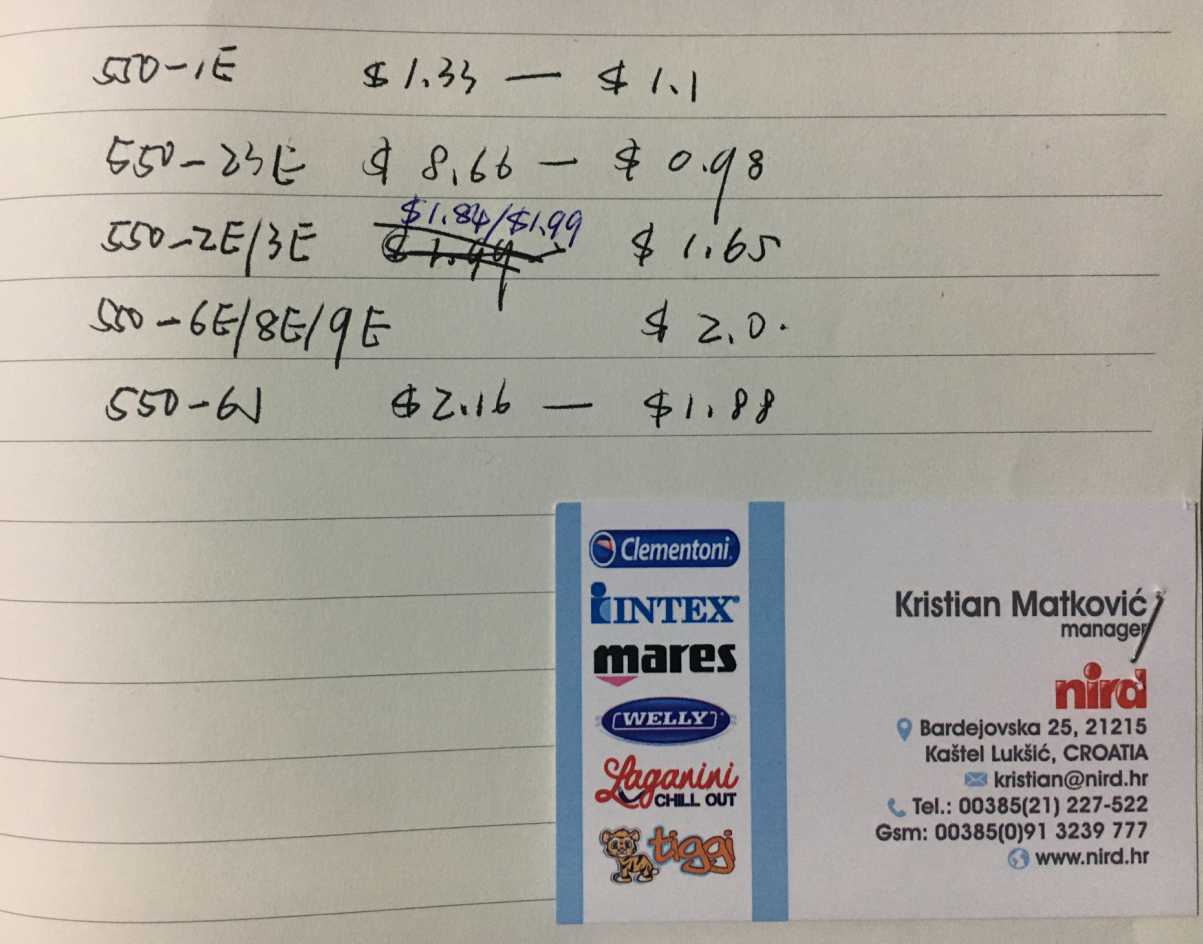 550-1E $1.33 — $1.1
550-23E $8.66 — $0.98
$1.84/$1.99
550-2E/3E $1.99 $1.65
550-6E/8E/9E $2.0.
550-6N $2.16 — $1.88
Clementoni
INTEX
mares
WELLY
Laganini
CHILL OUT
tiggi
Kristian Matković
manager
nird
Bardejovska 25, 21215
Kaštel Lukšić, CROATIA
kristian@nird.hr
Tel.: 00385(21) 227-522
Gsm: 00385(0)91 3239 777
www.nird.hr